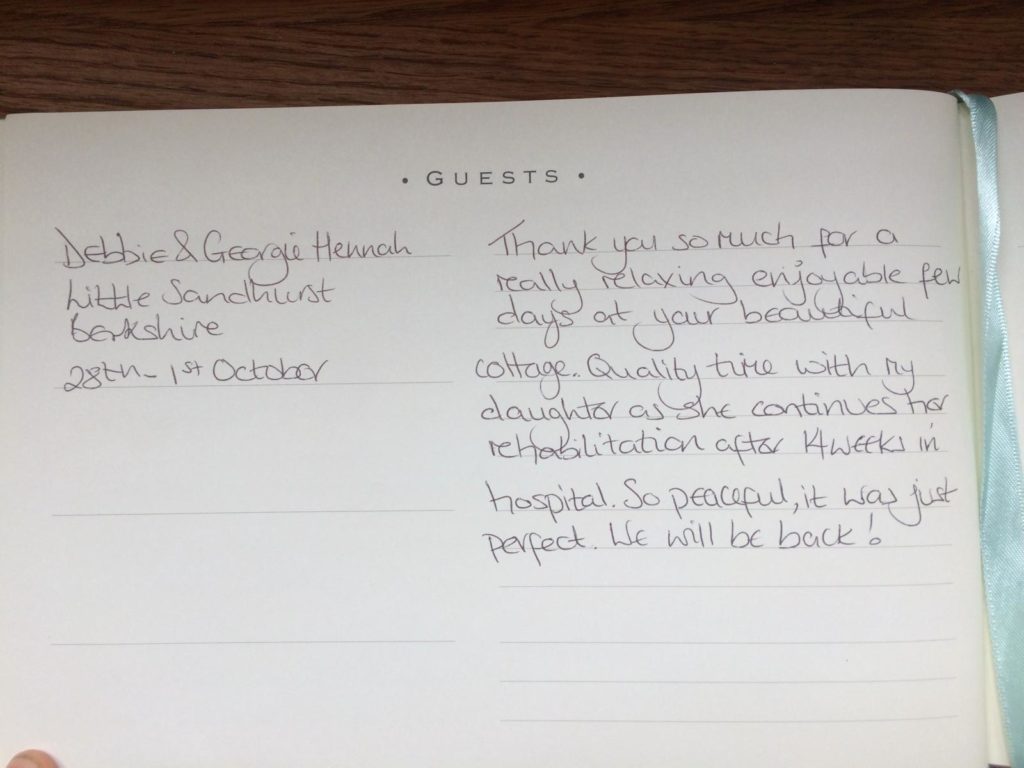 • GUESTS •
Debbie & Georgie Hennah
Little Sandhurst
Berkshire
28th - 1st October
Thank you so much for a
really relaxing enjoyable few
days at your beautiful
cottage. Quality time with my
daughter as she continues her
rehabilitation after 14 weeks in
hospital. So peaceful, it was just
perfect. We will be back!